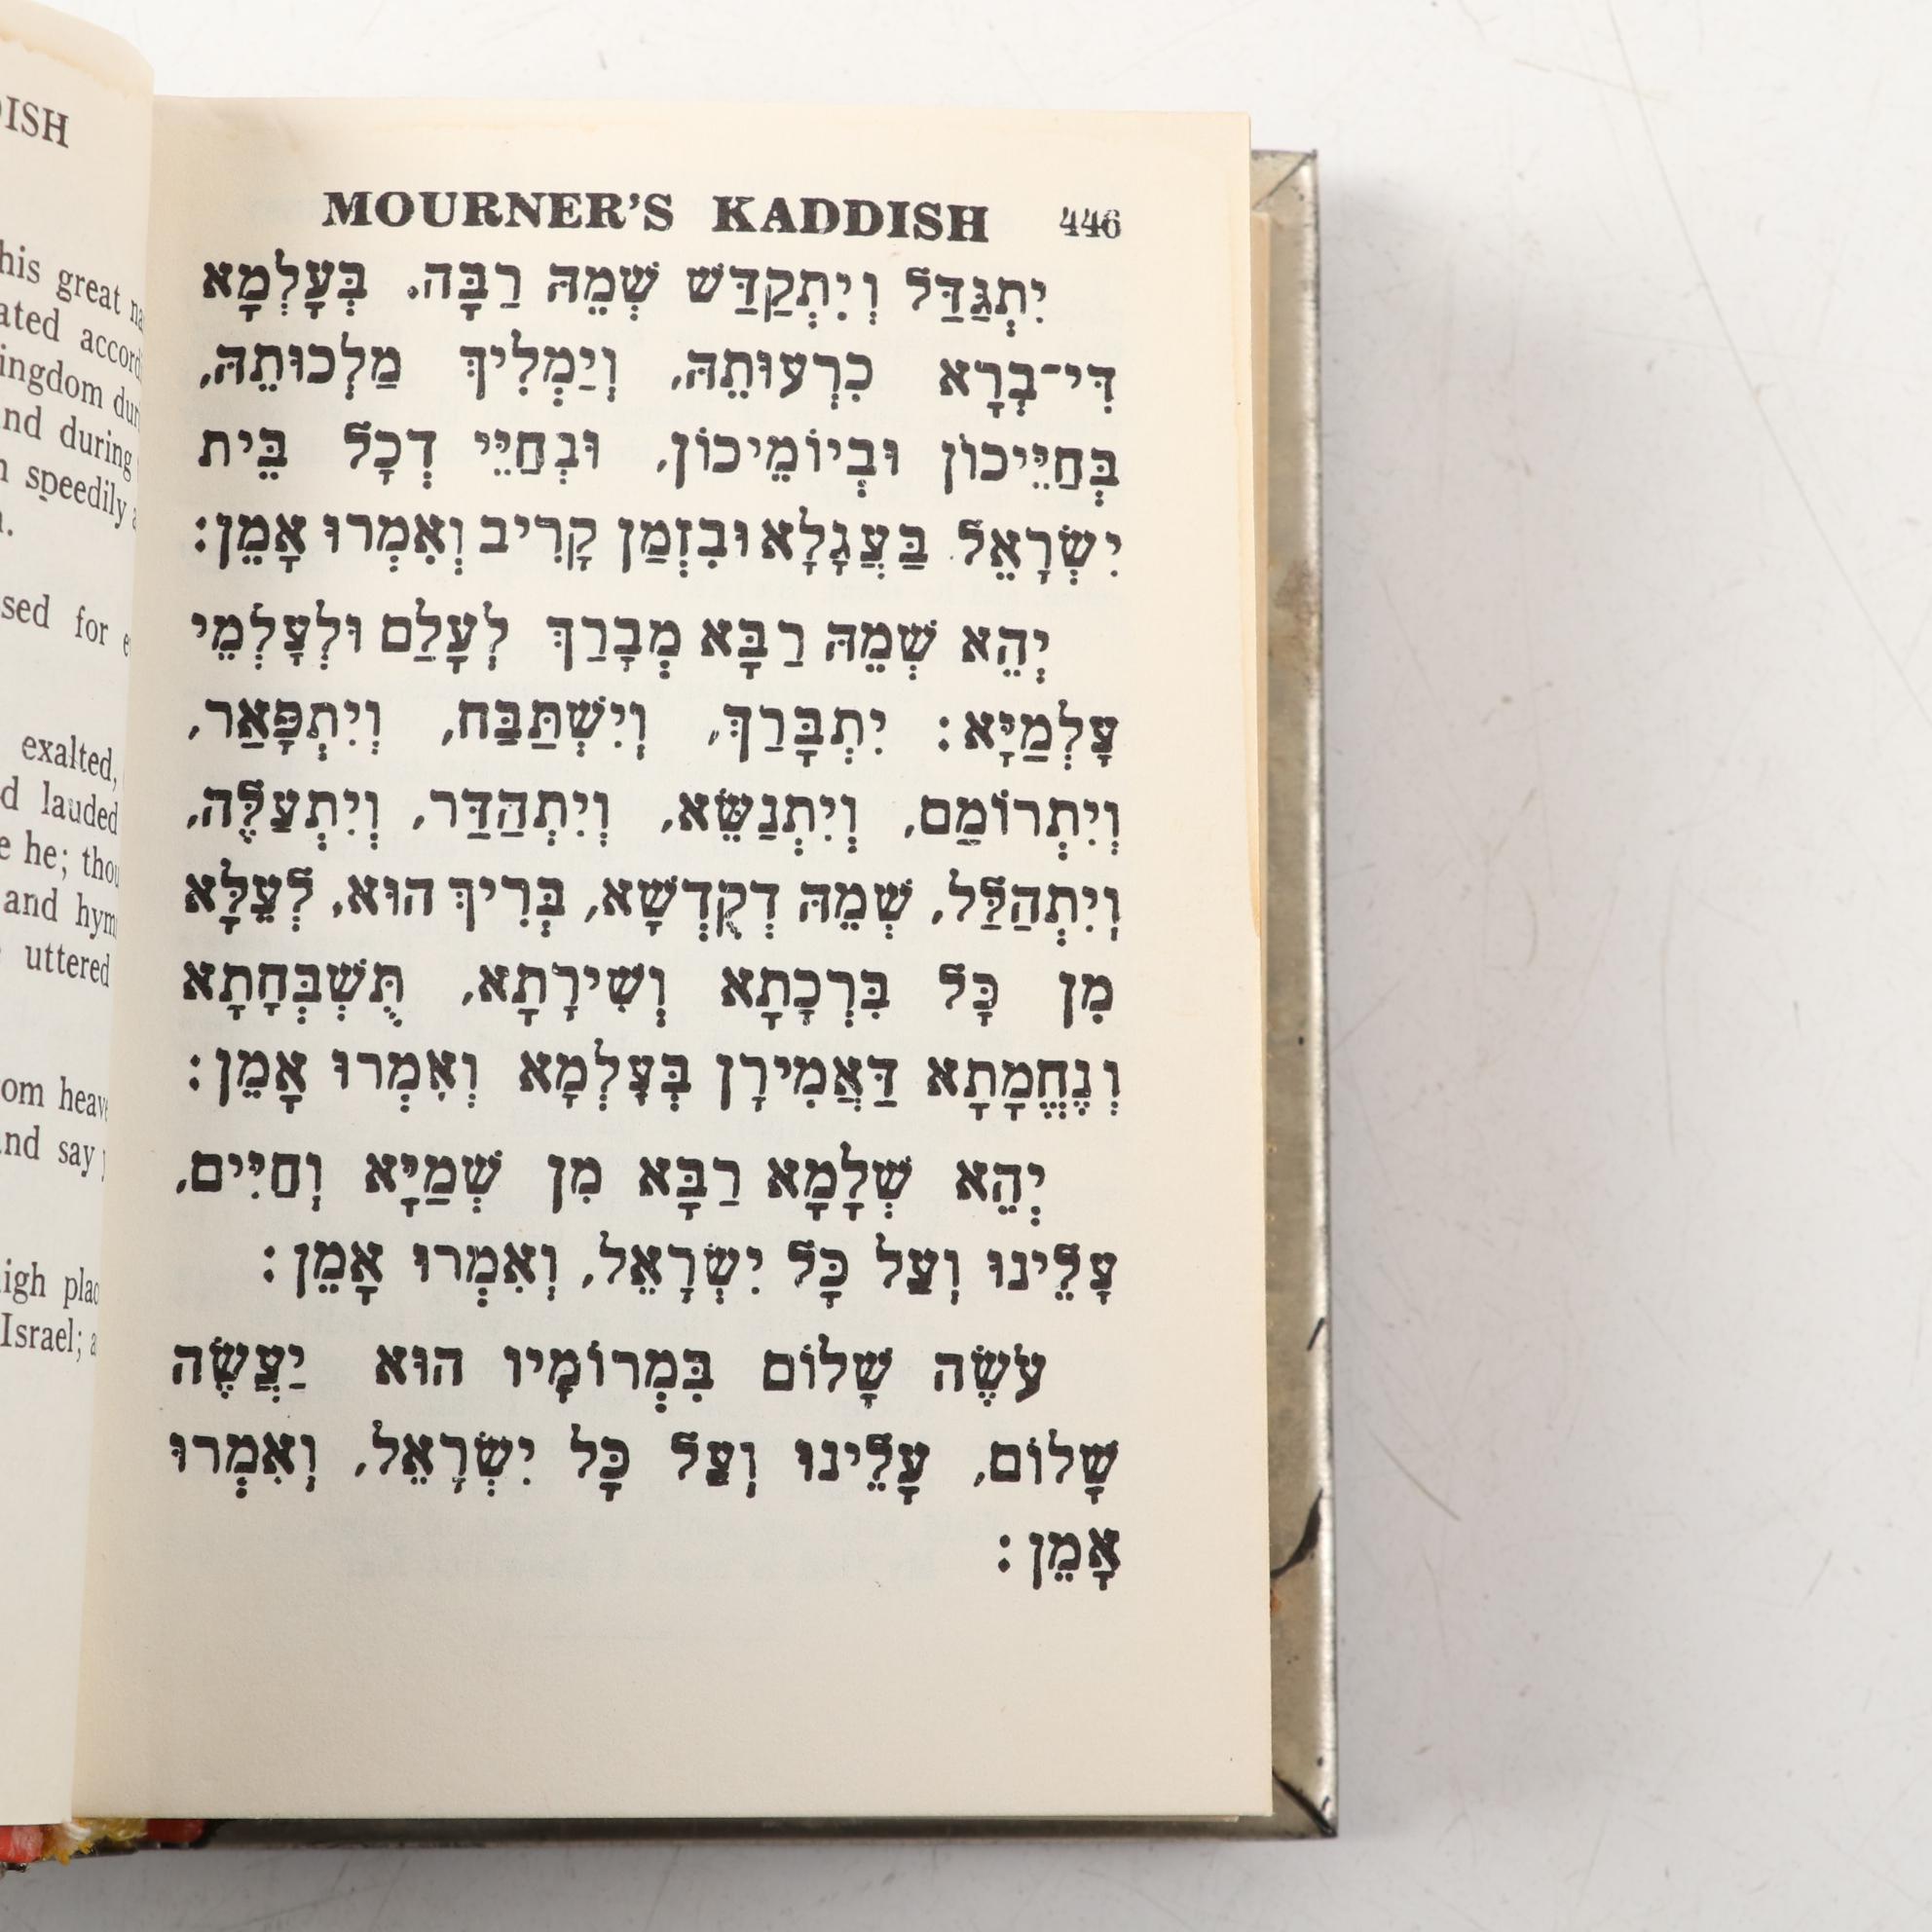 DISH
his great
ated
ingdom
and during
speedily
sed for
exalted,
lauded
e he;
and
uttered
om
and say
high
Israel;
MOURNER'S KADDISH 446
יִתְגַּדַּל וְיִתְקַדַּשׁ שְׁמֵהּ רַבָּה. בְּעָלְמָא
דִּי־בְרָא כִרְעוּתֵהּ, וְיַמְלִיךְ מַלְכוּתֵהּ,
בְּחַיֵּיכוֹן וּבְיוֹמֵיכוֹן, וּבְחַיֵּי דְכָל בֵּית
יִשְׂרָאֵל בַּעֲגָלָא וּבִזְמַן קָרִיב וְאִמְרוּ אָמֵן:
יְהֵא שְׁמֵהּ רַבָּא מְבָרַךְ לְעָלַם וּלְעָלְמֵי
עָלְמַיָּא: יִתְבָּרַךְ, וְיִשְׁתַּבַּח, וְיִתְפָּאַר,
וְיִתְרוֹמַם, וְיִתְנַשֵּׂא, וְיִתְהַדַּר, וְיִתְעַלֶּה,
וְיִתְהַלַּל, שְׁמֵהּ דְקֻדְשָׁא, בְּרִיךְ הוּא, לְעֵלָּא
מִן כָּל בִּרְכָתָא וְשִׁירָתָא, תֻּשְׁבְּחָתָא
וְנֶחֱמָתָא דַּאֲמִירָן בְּעָלְמָא וְאִמְרוּ אָמֵן:
יְהֵא שְׁלָמָא רַבָּא מִן שְׁמַיָּא וְחַיִּים,
עָלֵינוּ וְעַל כָּל יִשְׂרָאֵל, וְאִמְרוּ אָמֵן:
עֹשֶׂה שָׁלוֹם בִּמְרוֹמָיו הוּא יַעֲשֶׂה
שָׁלוֹם, עָלֵינוּ וְעַל כָּל יִשְׂרָאֵל, וְאִמְרוּ
אָמֵן: